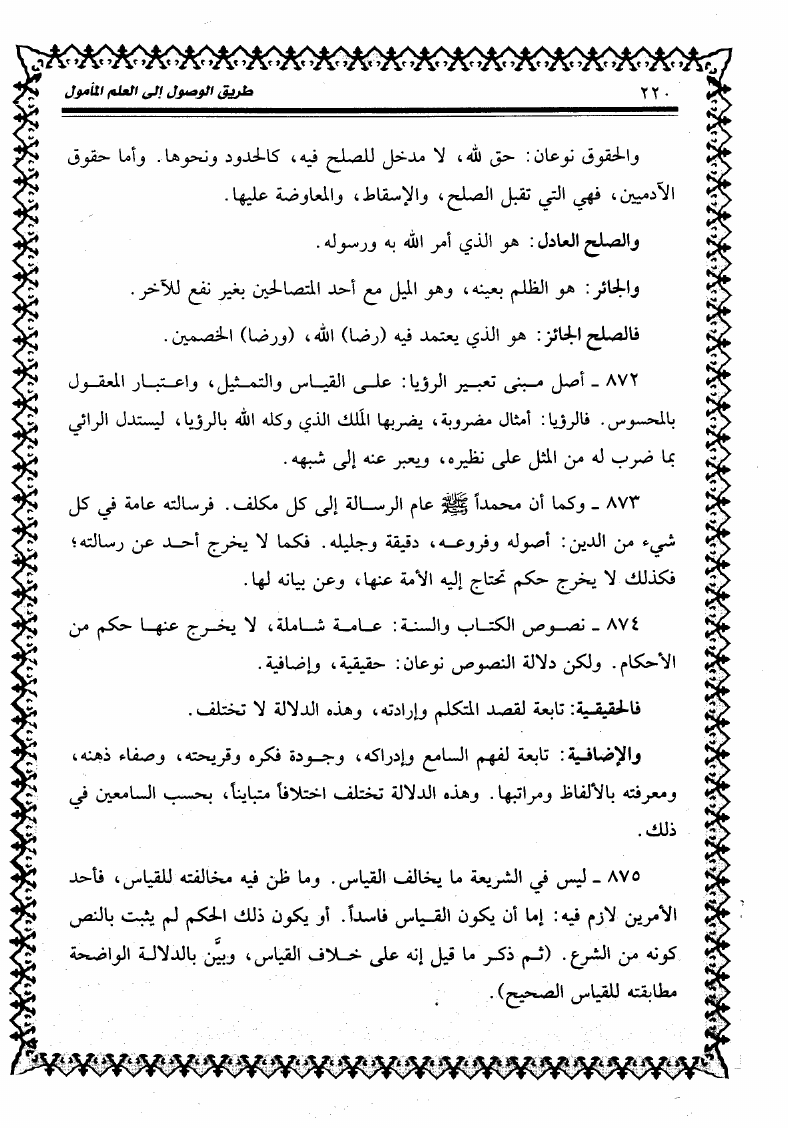 ٢٢٠
طريق الوصول إلى العلم المأمول
والحقوق نوعان: حق لله، لا مدخل للصلح فيه، كالحدود ونحوها. وأما حقوق
الآدميين، فهي التي تقبل الصلح، والإسقاط، والمعاوضة عليها.
والصلح العادل: هو الذي أمر الله به ورسوله.
والجائر: هو الظلم بعينه، وهو الميل مع أحد المتصالحين بغير نفع للآخر.
فالصلح الجائز: هو الذي يعتمد فيه (رضا) الله، (ورضا) الخصمين.
٨٧٢ ـ أصل مبنى تعبير الرؤيا: على القياس والتمثيل، واعتبار المعقول
بالمحسوس. فالرؤيا: أمثال مضروبة، يضربها الملَك الذي وكله الله بالرؤيا، ليستدل الرائي
بما ضرب له من المثل على نظيره، ويعبر عنه إلى شبهه.
٨٧٣ ـ وكما أن محمداً ﷺ عام الرسالة إلى كل مكلف. فرسالته عامة في كل
شيء من الدين: أصوله وفروعه، دقيقة وجليله. فكما لا يخرج أحد عن رسالته؛
فكذلك لا يخرج حكم تحتاج إليه الأمة عنها، وعن بيانه لها.
٨٧٤ ـ نصوص الكتاب والسنة: عامة شاملة، لا يخرج عنها حكم من
الأحكام. ولكن دلالة النصوص نوعان: حقيقية، وإضافية.
فالحقيقية: تابعة لقصد المتكلم وإرادته، وهذه الدلالة لا تختلف.
والإضافية: تابعة لفهم السامع وإدراكه، وجودة فكره وقريحته، وصفاء ذهنه،
ومعرفته بالألفاظ ومراتبها. وهذه الدلالة تختلف اختلافاً متبايناً، بحسب السامعين في
ذلك.
٨٧٥ ـ ليس في الشريعة ما يخالف القياس. وما ظن فيه مخالفته للقياس، فأحد
الأمرين لازم فيه: إما أن يكون القياس فاسداً. أو يكون ذلك الحكم لم يثبت بالنص
كونه من الشرع. (ثم ذكر ما قيل إنه على خلاف القياس، وبيَّن بالدلالة الواضحة
مطابقته للقياس الصحيح).